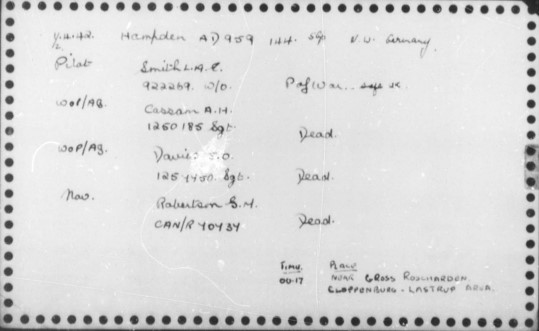 Hampden AD 959 144. Sqn N.W. Germany.
Pilot Smith L.A.E.
922269. W/O. P of War.. safe UK.
WOP/AG. Cassam A.H.
1250185 Sgt. Dead.
WOP/AG. Davies S.O.
1257450. Sgt. Dead.
Nav. Robertson G.M.
CAN/R 70434 Dead.
TIME. PLACE
00.17 NEAR GROSS ROSCHARDEN.
CLOPPENBURG - LASTRUP AREA.